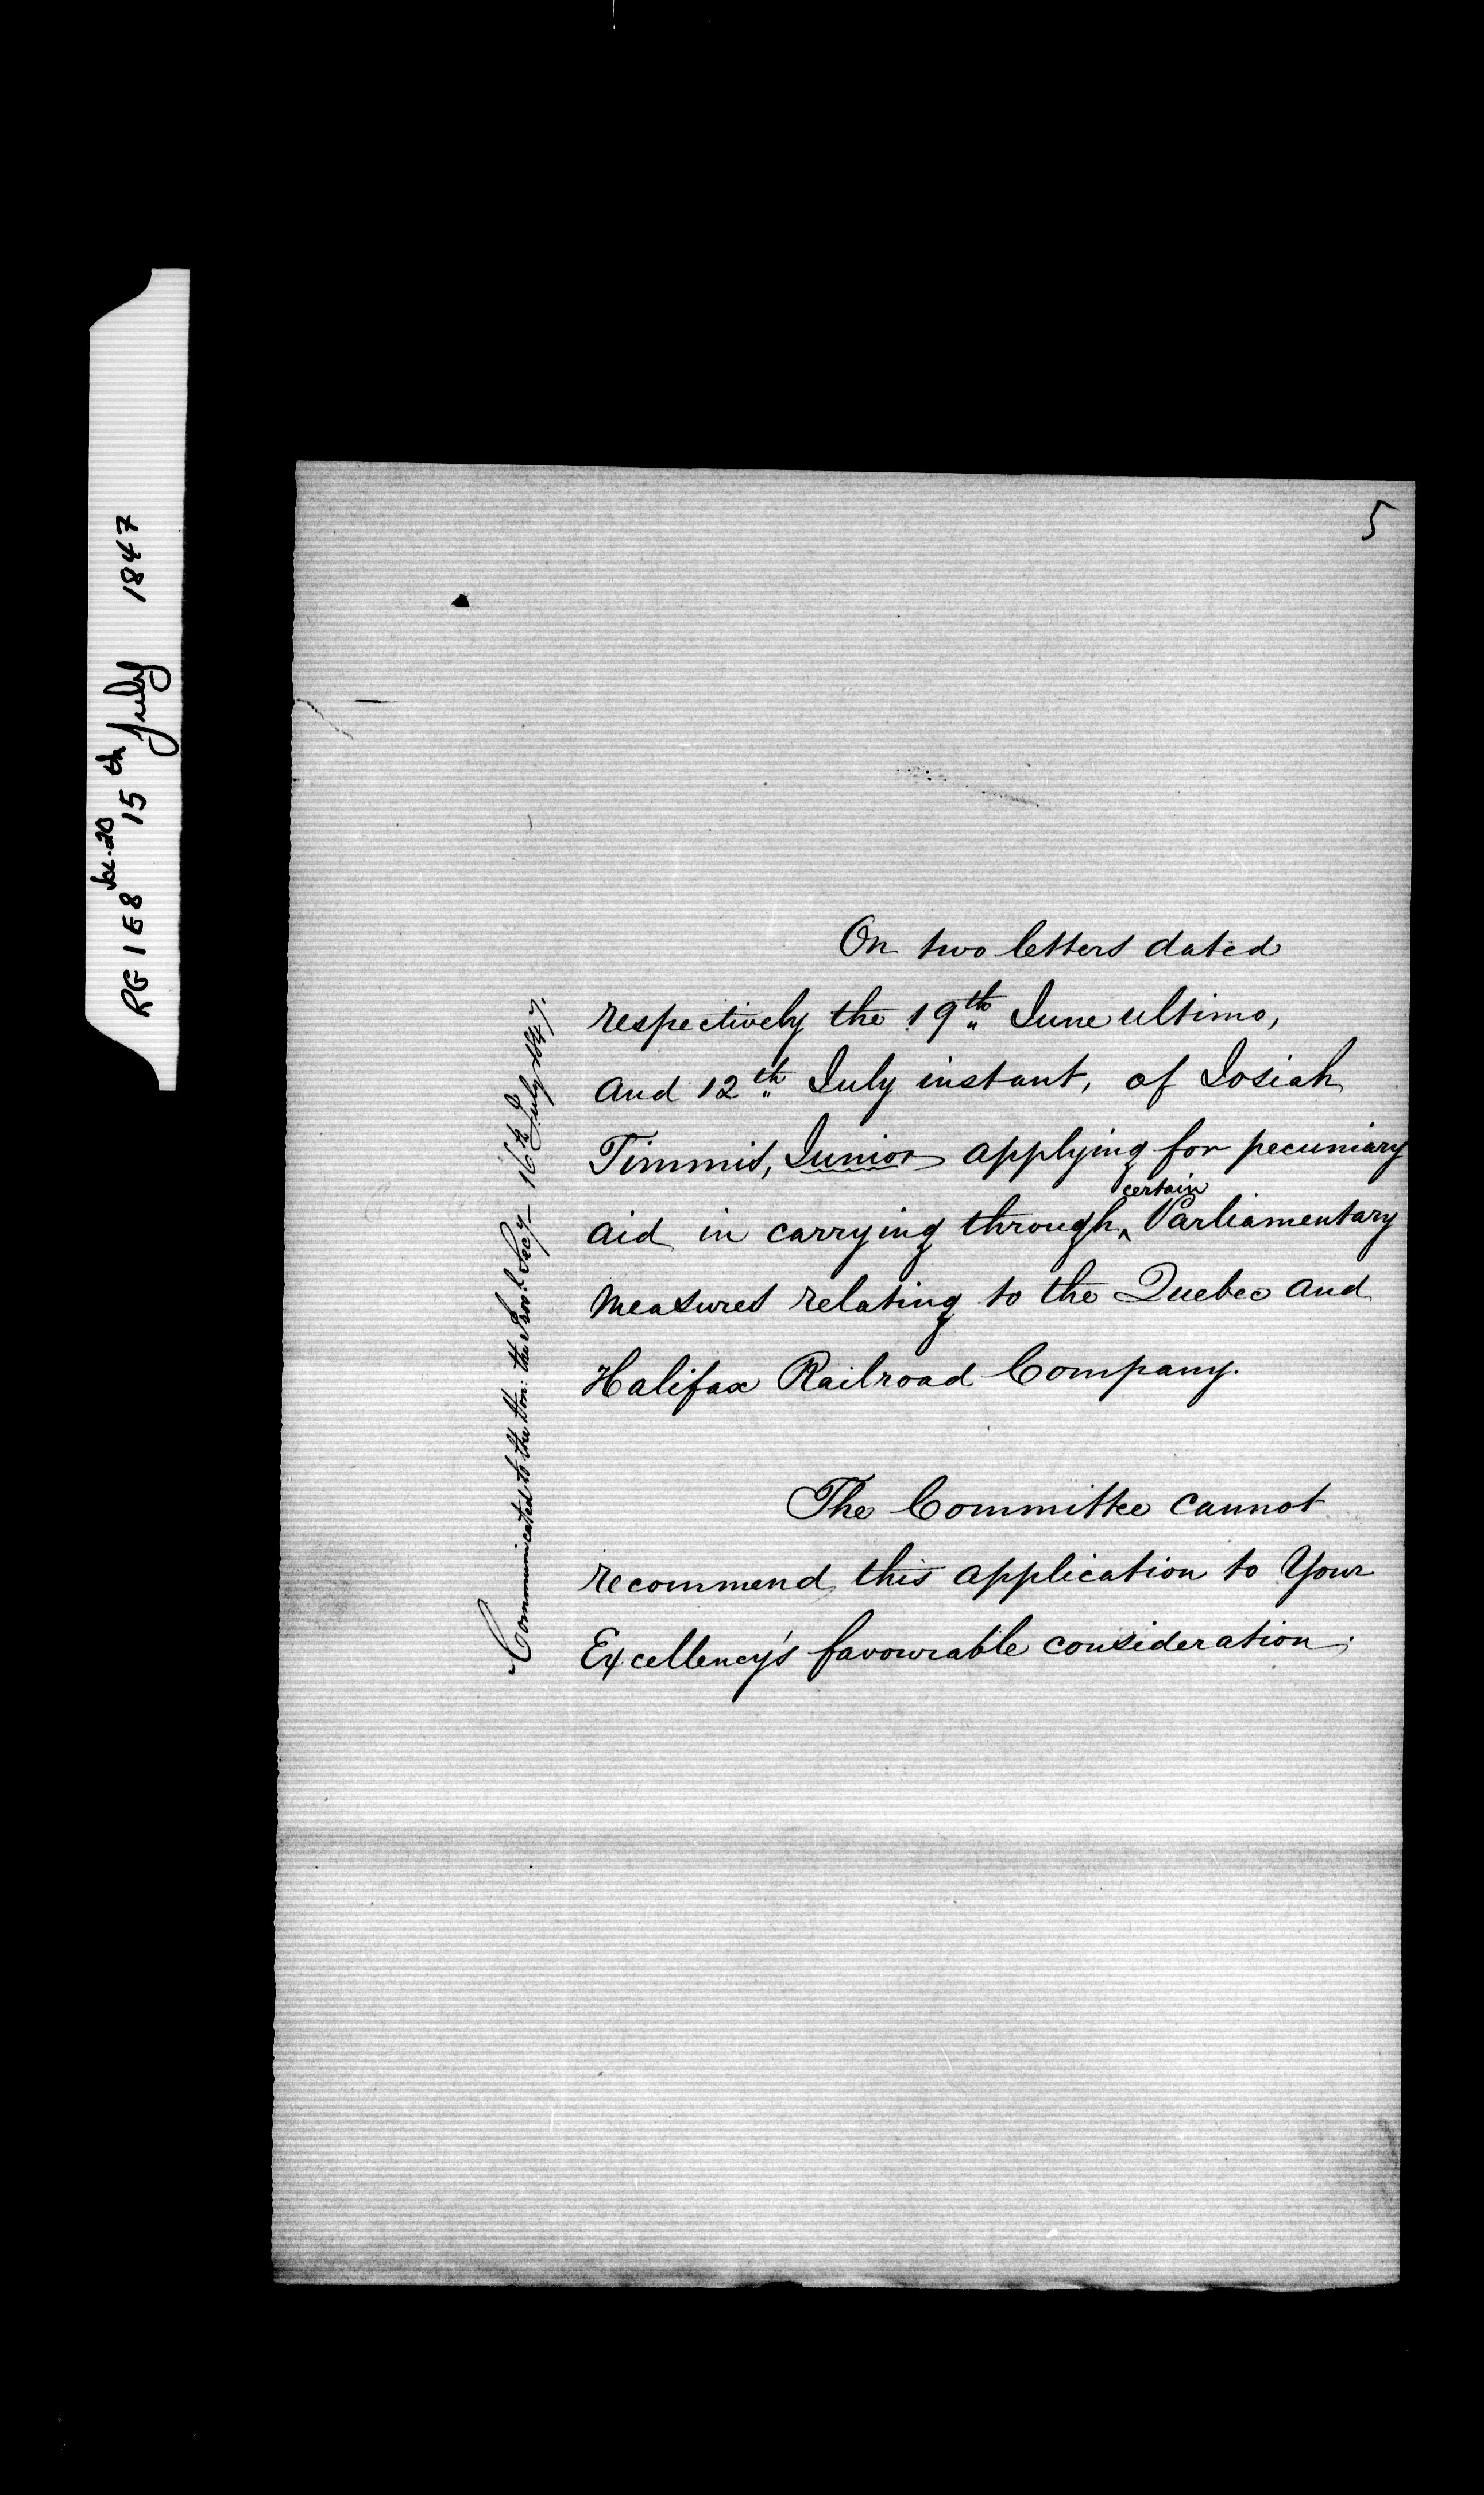 RG 1 E8 Vol. 20 15th July 1847
5
On two letters dated
respectively the 19th June ultimo,
and 12th July instant, of Josiah
Timmis, Junior applying for pecuniary
aid in carrying through certain Parliamentary
measures relating to the Quebec and
Halifax Railroad Company.
The Committee cannot
recommend this application to Your
Excellency's favourable consideration.
Communicated to the Hon: the Provl. Secy_ 16th July 1847.